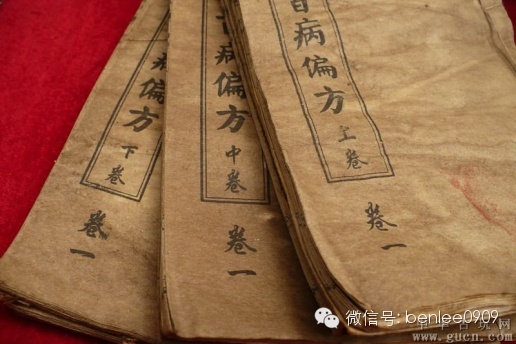 百病偏方
上卷
卷一
病偏方
中卷
卷一
病偏方
下卷
卷一
微信号: benlee0909
www.gucn.com